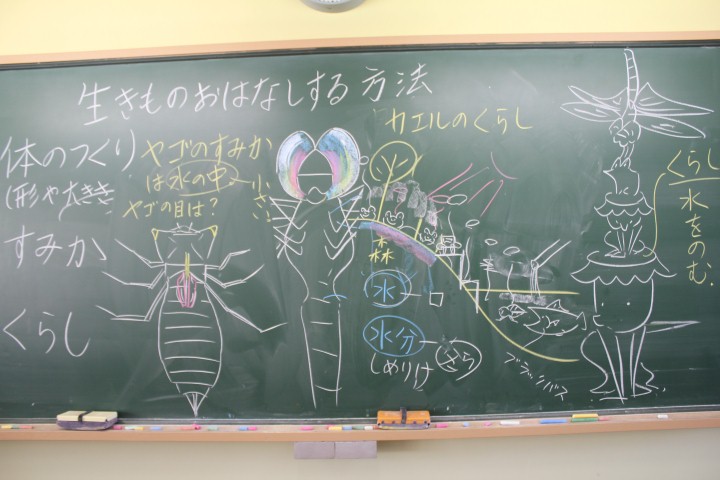 生きものおはなしする方法
体のつくり
(形や大きさ
すみか
くらし
ヤゴのすみか
は水の中
ヤゴの目は?
小さい
カエルのくらし
森
水
水分
しめりけ
さら
ブラックバス
くらし
水をのむ